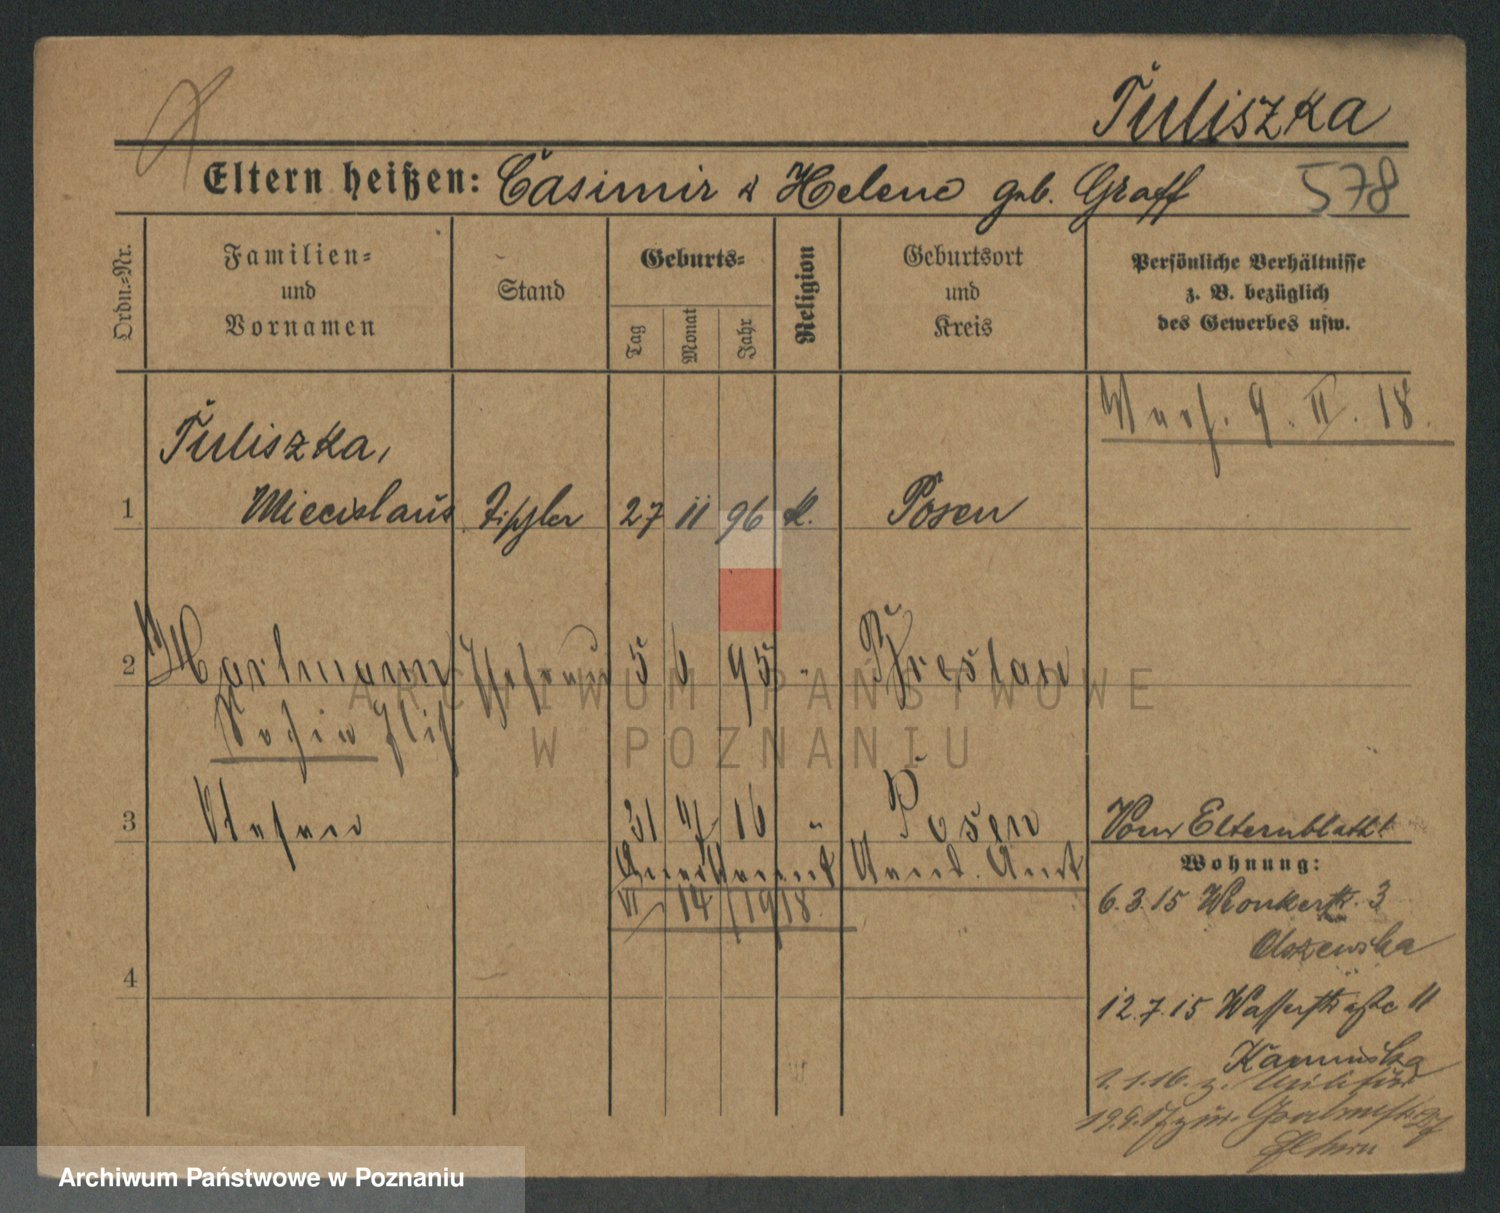 Tuliszka
Eltern heißen: Casimir & Helene geb. Graff 578
Ordn.-Nr.
Familien-
und
Vornamen
Stand
Geburts-
Tag
Monat
Jahr
Religion
Geburtsort
und
Kreis
Persönliche Verhältnisse
z. B. bezüglich
des Gewerbes usw.
9. II. 18.
Tuliszka,
1 Miecislaus Tischler 27 11 96 k. Posen
2 Hartmann Ehefrau 5 6 95 " Breslau
3 Stefanie 31 16 " Posen
Stand. Amt
VI 14/1918.
Vom Elternblatt
Wohnung:
6.3.15 Wronkerstr. 3
Olszewska
4
12.7.15 Wasserstraße 11
Kaminska
1.1.16. z. Militär
Eltern
ARCHIWUM PAŃSTWOWE
W POZNANIU
Archiwum Państwowe w Poznaniu